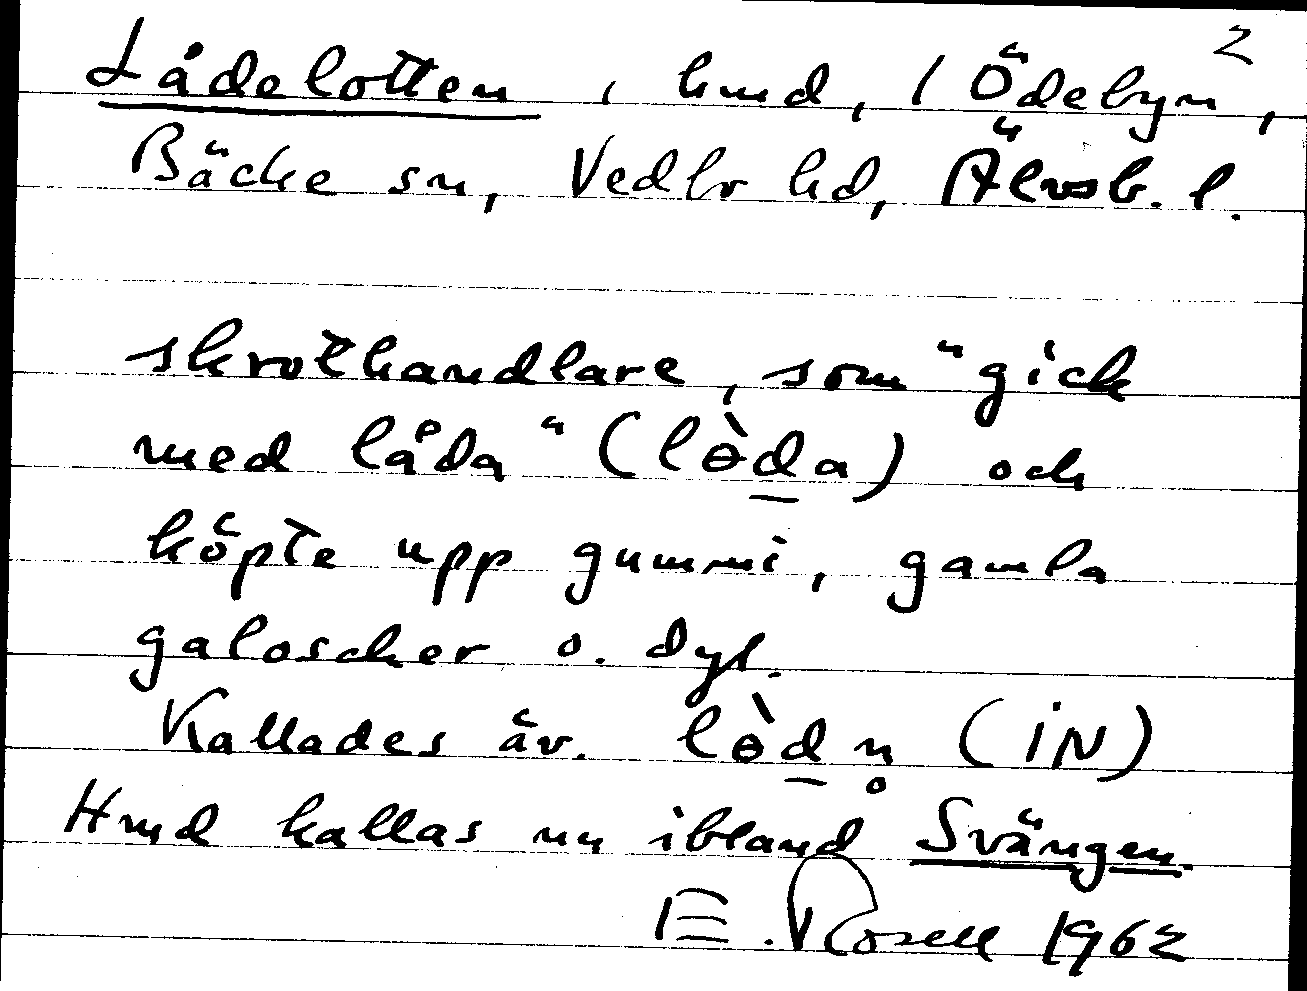 2
Lådelotten, hmd, / Ödebyn,
Bäcke sn, Vedbo hd, Älvsb. l.
skrothandlare, som "gick
med låda" (lɵ̀d̲a) och
köpte upp gummi, gamla
galoscher o. dyl.
Kallades äv. lɵ̀d̲n̥ (iN)
Hmd kallas nu ibland Svängen.
E. Rosell 1962